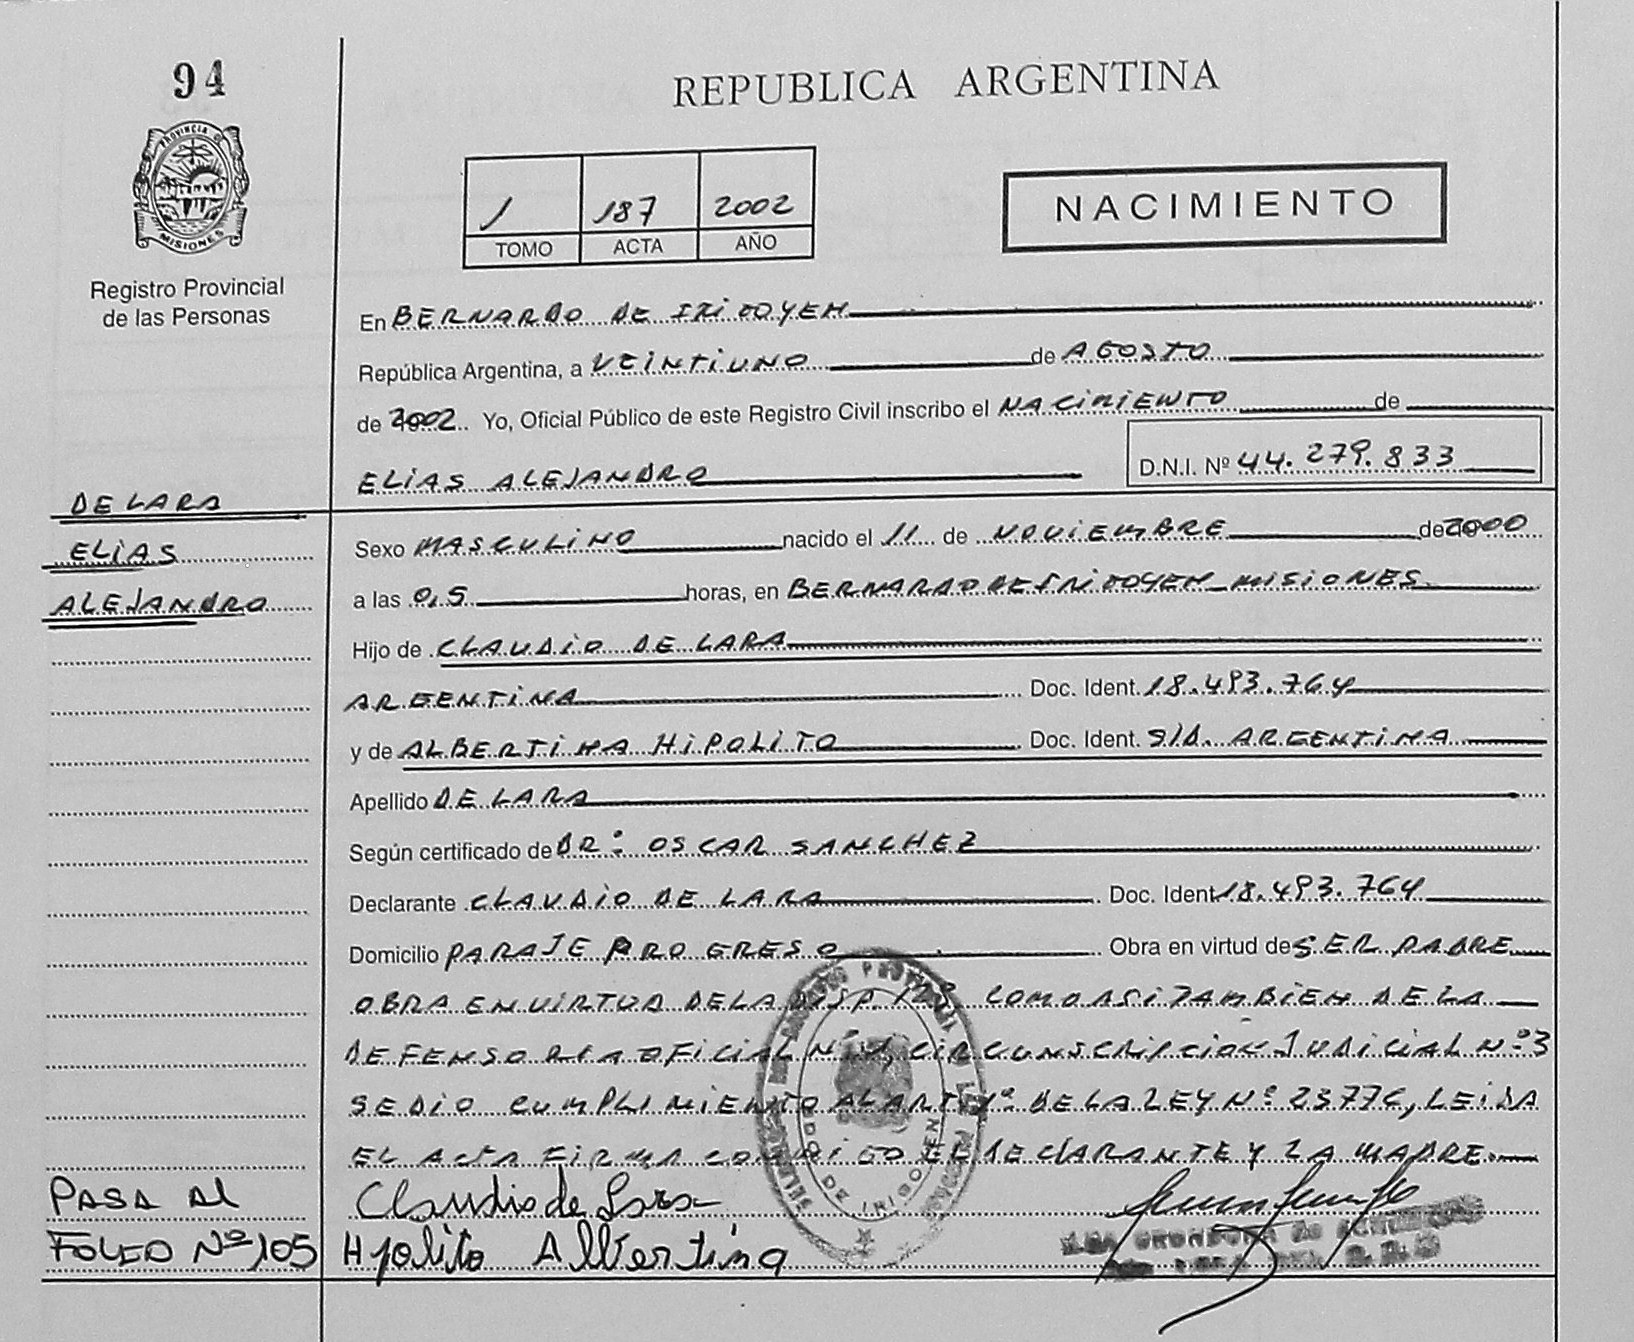 94
REPUBLICA ARGENTINA
PROVINCIA DE
MISIONES
Registro Provincial
de las Personas
1 187 2002
TOMO ACTA AÑO
NACIMIENTO
En BERNARDO DE IRIGOYEN
República Argentina, a VEINTIUNO de AGOSTO
de 2002. Yo, Oficial Público de este Registro Civil inscribo el NACIMIENTO de
ELIAS ALEJANDRO D.N.I. Nº 44.279.833
DE LARA
ELIAS
ALEJANDRO
Sexo MASCULINO nacido el 11 de NOVIEMBRE de 2000
a las 0,5 horas, en BERNARDO DE IRIGOYEN MISIONES
Hijo de CLAUDIO DE LARA
ARGENTINA Doc. Ident. 18.493.764
y de ALBERTINA HIPOLITO Doc. Ident. S/D. ARGENTINA
Apellido DE LARA
Según certificado de DR: OSCAR SANCHEZ
Declarante CLAUDIO DE LARA Doc. Ident 18.493.764
Domicilio PARAJE PROGRESO Obra en virtud de SER PADRE
OBRA EN VIRTUD DE LA DISP. COMO ASI TAMBIEN DE LA
DEFENSORIA OFICIAL Nº CIRCUNSCRIPCION JUDICIAL Nº 3
SE DIO CUMPLIMIENTO AL ART 1º DE LA LEY Nº 23776, LEIDA
EL ACTA FIRMA CONMIGO EL DECLARANTE Y LA MADRE.
PASA Al
FOLEO Nº 105
Claudio de Lara
Hpolito Albertina
DE IRIGOYEN